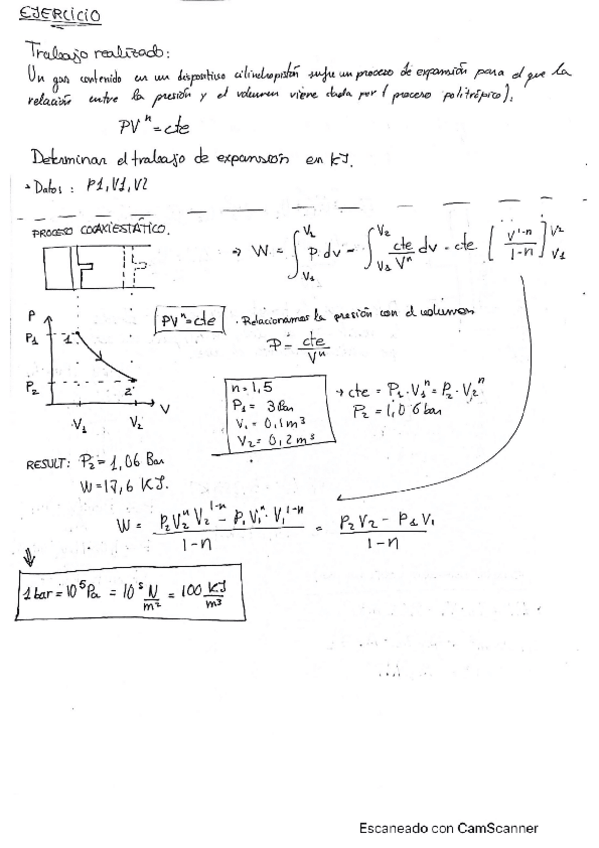 EJERCICIO
Trabajo realizado:
Un gas contenido en un dispositivo cilindro pistón sufre un proceso de expansión para el que la
relación entre la presión y el volumen viene dada por (proceso politrópico).
PVⁿ = cte
Determinar el trabajo de expansión en kJ.
→ Datos: P1, V1, V2
PROCESO CUAXIESTÁTICO.
→ W = ∫_{V₁}^{V₂} P dv = ∫_{V₁}^{V₂} cte/Vⁿ dv = cte [V^{1-n}/1-n]_{V1}^{V2}
PVⁿ = cte
. Relacionamos la presión con el volumen
P = cte/Vⁿ
P
P1
P2
1
2
V
V₁
V₂
n = 1,5
P₁ = 3 Bar
V₁ = 0,1 m³
V₂ = 0,2 m³
→ cte = P₁·V₁ⁿ = P₂·V₂ⁿ
P₂ = 1,06 bar
RESULT: P₂ = 1,06 Bar
W = 17,6 KJ.
W = P₂V₂ⁿV₂^{1-n} - P₁V₁ⁿ·V₁^{1-n} / 1-n = P₂V₂ - P₁V₁ / 1-n
1 bar = 10⁵ Pa = 10⁵ N/m² = 100 KJ/m³
Escaneado con CamScanner